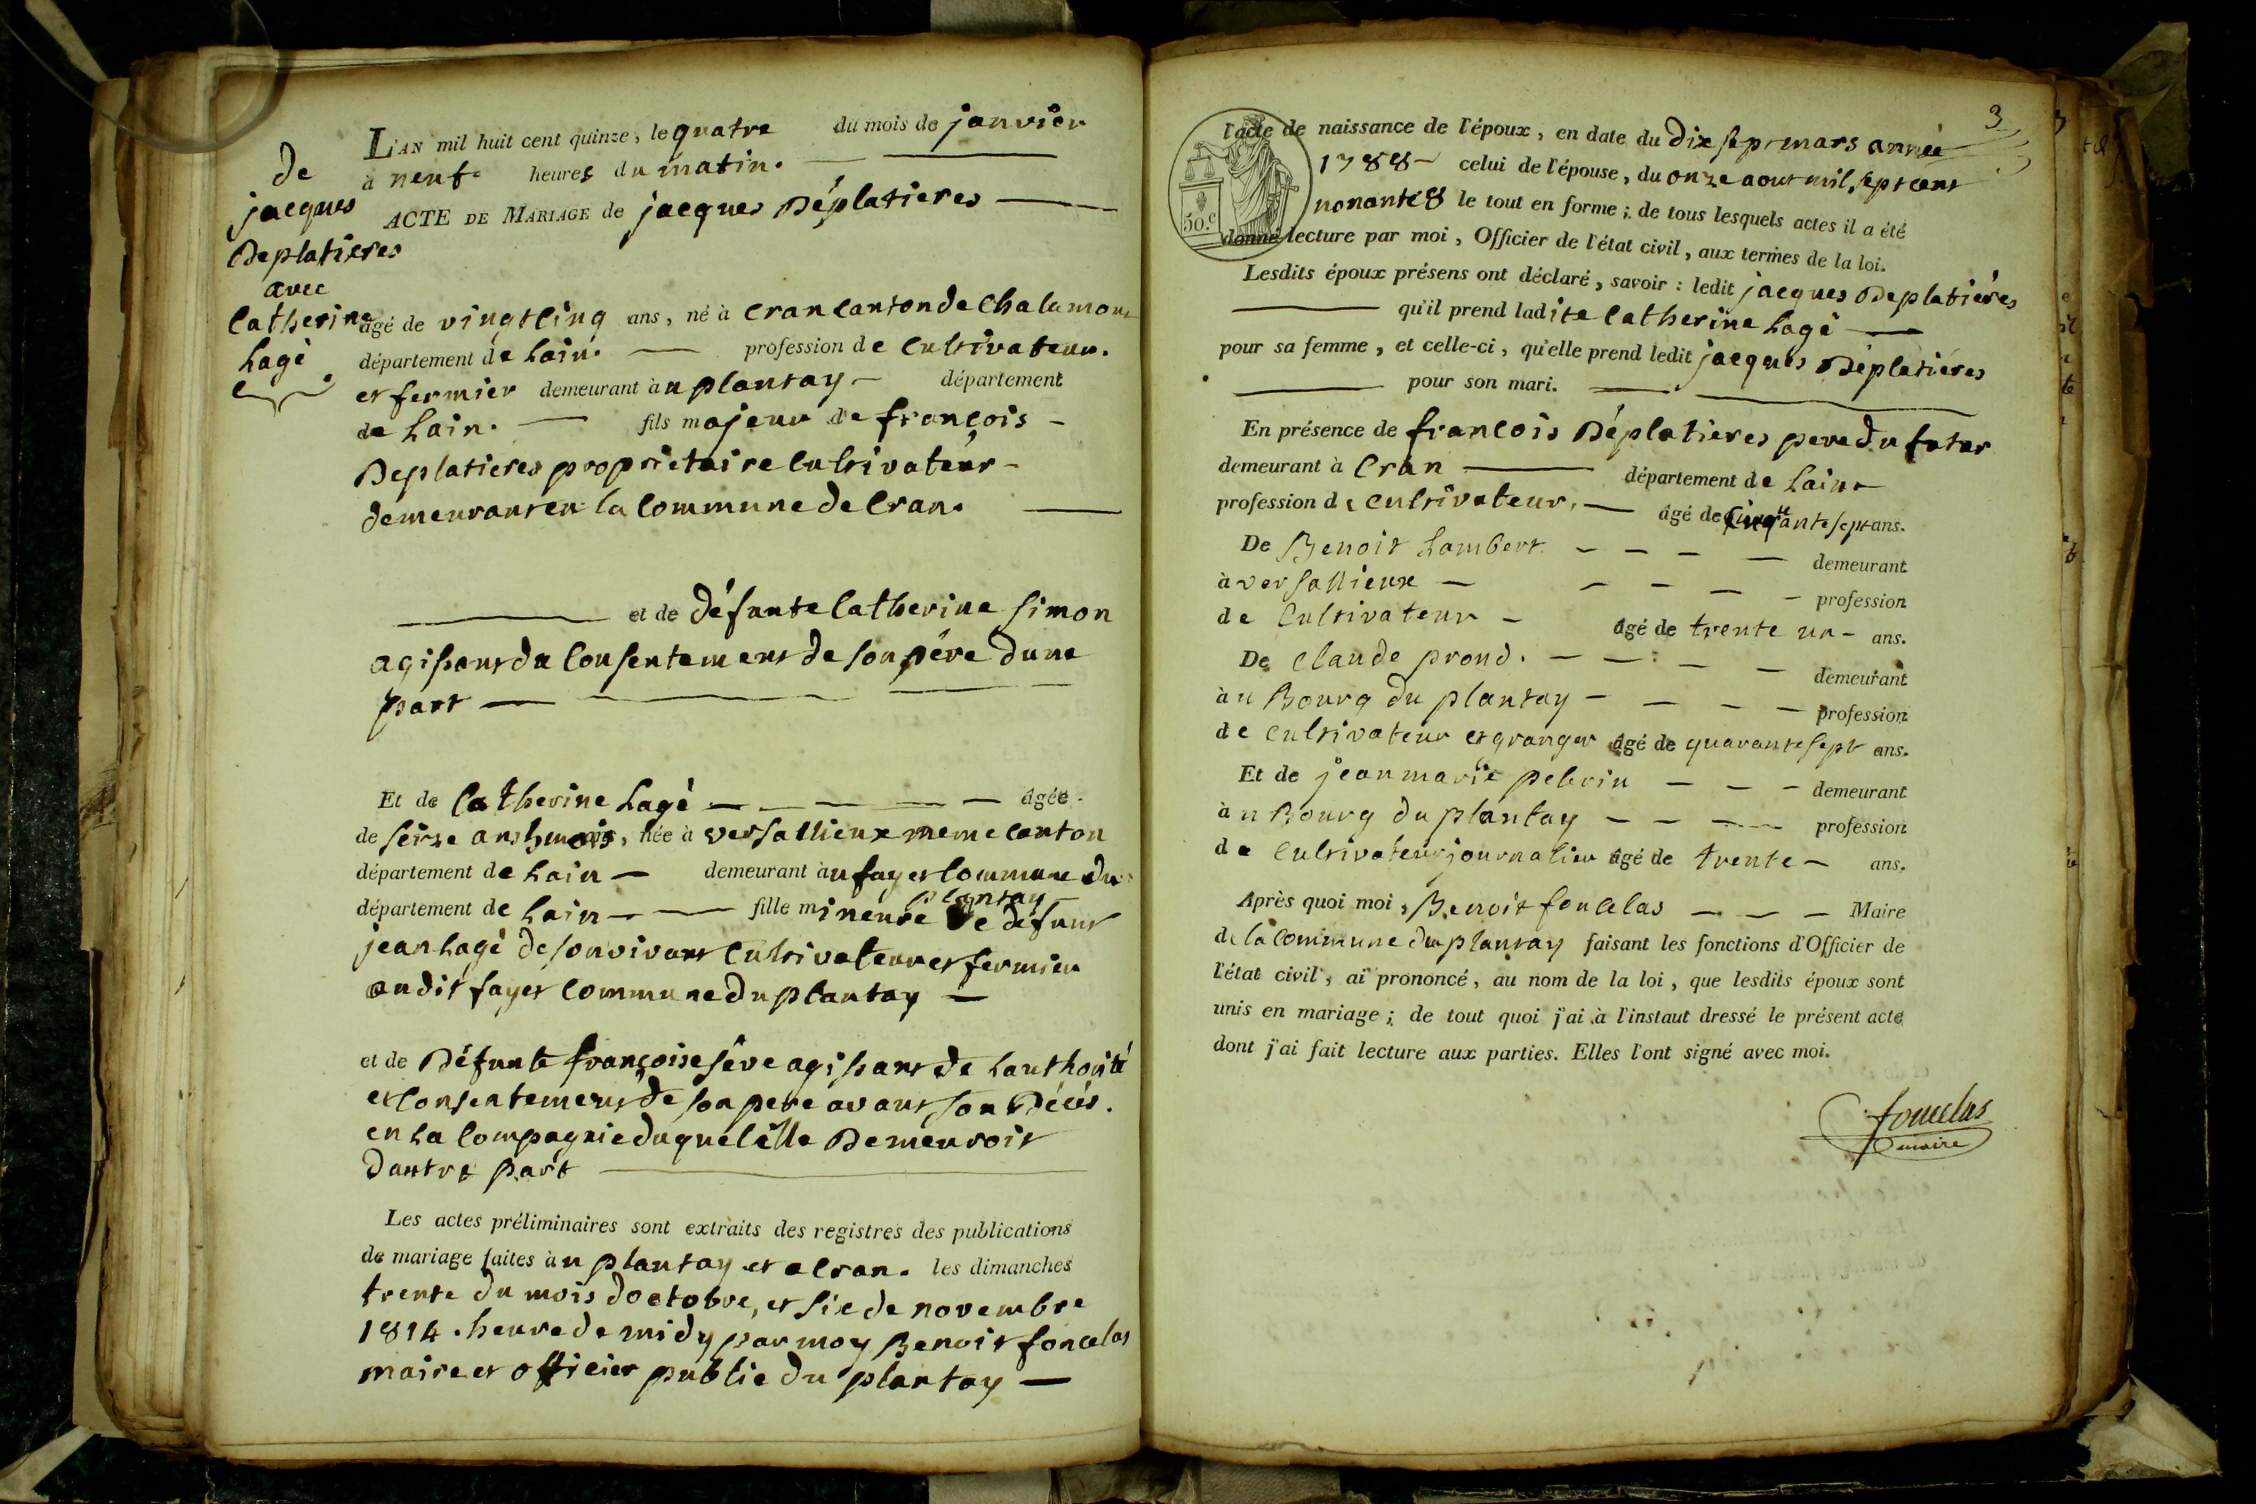 de
jacques
Deplatieres
avec
Catherine
Lagé
L'AN mil huit cent quinze, le quatre du mois de janvier
à neuf heures du matin.
ACTE DE MARIAGE de jacques Déplatieres
âgé de vingt cinq ans, né à Cran canton de Chalamont
département de Lain. profession de Cultivateur.
et fermier demeurant àu plantay département
de Lain. fils majeur de françois
Deplatieres propriétaire Cultivateur
demeurant en la Commune de Cran.
et de défunte Catherine Simon
agissant du Consentement de son pére dune
part
Et de Catherine Lagé âgée
de seize ans, née à versallieux meme canton
département de Lain demeurant àu fayet Commune du
plantay
département de Lain fille mineure de défunt
jean Lagé de son vivant Cultivateur et fermier
au dit fayet Commune du plantay
et de Défunte françoise séve agissant de Lauthorité
et Consentement de son pere avant son Décés.
en La Compagnie duquel elle Demeuroit
dautre part
Les actes préliminaires sont extraits des registres des publications
de mariage faites àu plantay et a Cran. les dimanches
trente du mois doctobre, et six de novembre
1814. heure de midy par moy Benoit foncelas
maire et officier public du plantay
3
50.c
l'acte de naissance de l'époux, en date du dix sept mars année
1788 celui de l'épouse, du onze aout mil sept cent
nonante 8 le tout en forme; de tous lesquels actes il a été
donné lecture par moi, Officier de l'état civil, aux termes de la loi.
Lesdits époux présens ont déclaré, savoir: ledit jacques Deplatiéres
qu'il prend ladite Catherine Lagé
pour sa femme, et celle-ci, qu'elle prend ledit jacques Déplatiéres
pour son mari.
En présence de francois Déplatieres pere du futur
demeurant à Cran département de Lain
profession de Cultivateur, âgé de Cinquante sept ans.
De Benoit Lambert demeurant
à versallieux profession
de Cultivateur âgé de trente un ans.
De Claude prond. demeurant
àu Bourg du plantay profession
de Cultivateur et granger âgé de quarante sept ans.
Et de jean marie pelerin demeurant
àu Bourg du plantay profession
de Cultivateur journalier âgé de trente ans.
Après quoi moi, Benoit foncelas Maire
de la Commune du plantay faisant les fonctions d'Officier de
l'état civil, ai prononcé, au nom de la loi, que lesdits époux sont
unis en mariage; de tout quoi j'ai à l'instaut dressé le présent acte
dont j'ai fait lecture aux parties. Elles l'ont signé avec moi.
foncelas
maire